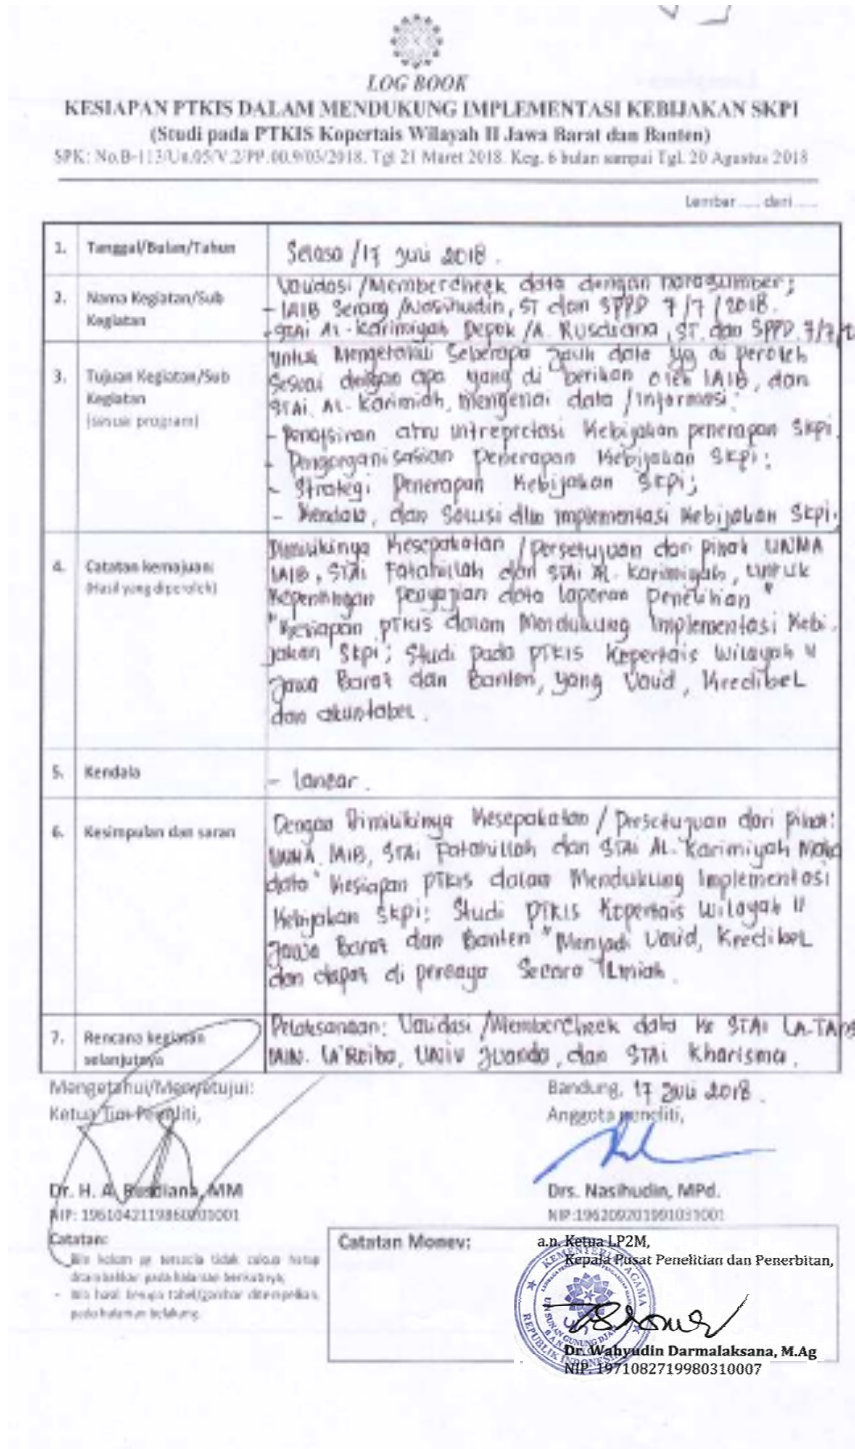 LOG BOOK
KESIAPAN PTKIS DALAM MENDUKUNG IMPLEMENTASI KEBIJAKAN SKPI
(Studi pada PTKIS Kopertais Wilayah II Jawa Barat dan Banten)
SPK: No.B-113/Un.05/V.2/PP.00.9/03/2018. Tgl 21 Maret 2018. Keg. 6 bulan sampai Tgl. 20 Agustus 2018
Lembar ..... dari .....
1. Tanggal/Bulan/Tahun
Selasa /17 Juli 2018.
2. Nama Kegiatan/Sub Kegiatan
Validasi /Membercheck data dengan narasumber;
- IAIB Serang /Nasihudin, ST dan SPPD 7/7/2018.
- STAI AL-Karimiyah Depok /A. Rusdiana, ST. dan SPPD. 7/7/2
3. Tujuan Kegiatan/Sub Kegiatan
(sesuai program)
untuk Mengetahui Seberapa jauh data yg di peroleh
Sesuai dengan apa yang di berikan oleh IAIB, dan
STAI. AL-Karimiah, mengenai data /informasi:
- Penafsiran atau intrepretasi Kebijakan penerapan SKPI
- Pengorganisasian Penerapan Kebijakan SKPI;
- Strategi Penerapan Kebijakan SKPI;
- Kendala, dan Solusi dlm implementasi Kebijakan SKPI.
4. Catatan kemajuan:
(Hasil yang diperoleh)
Dimilikinya Kesepakatan /persetujuan dari pihak UNMA
IAIB, STAI Fatahillah dan STAI AL-Karimiyah, untuk
Kepentingan penyajian data laporan Penelitian "
"Kesiapan PTKIS dalam Mendukung Implementasi Kebi-
jakan SKPI; Studi pada PTKIS Kopertais Wilayah II
Jawa Barat dan Banten, yang Valid, Kredibel
dan akuntabel.
5. Kendala
- Lancar.
6. Kesimpulan dan saran
Dengan Dimilikinya Kesepakatan / Persetujuan dari pihak:
UNMA, IAIB, STAI Fatahillah dan STAI AL-Karimiyah Maka
data "Kesiapan PTKIS dalam Mendukung Implementasi
Kebijakan SKPI: Studi PTKIS Kopertais Wilayah II
Jawa Barat dan Banten "Menjadi Valid, Kredibel
dan dapat di percaya Secara Ilmiah.
7. Rencana kegiatan selanjutnya
Pelaksanaan: Validasi /Membercheck data ke STAI LA-TANS
IAIN. La'Roiba, UNIV Juanda, dan STAI Kharisma.
Mengetahui/Menyetujui:
Ketua Tim Peneliti,
Bandung, 17 Juli 2018.
Anggota peneliti,
Dr. H. A. Rusdiana, MM
NIP: 196104211986021001
Drs. Nasihudin, MPd.
NIP:196209201991031001
Catatan:
- Bila kolom yg tersedia tidak cukup harap
ditambahkan pada halaman berikutnya;
- Bila hasil berupa tabel/gambar ditempelkan
pada halaman belakang.
Catatan Monev:
a.n. Ketua LP2M,
Kepala Pusat Penelitian dan Penerbitan,
KEMENTERIAN AGAMA
UIN SUNAN GUNUNG DJATI
REPUBLIK INDONESIA
Dr. Wahyudin Darmalaksana, M.Ag
NIP. 1971082719980310007